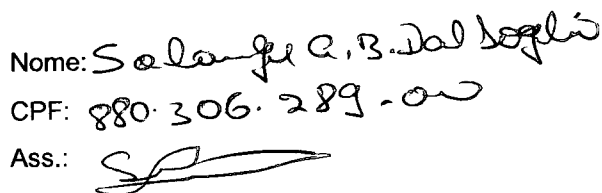 Nome: Solange A. B. Dal Soglio
CPF: 880.306.289-00
Ass.: